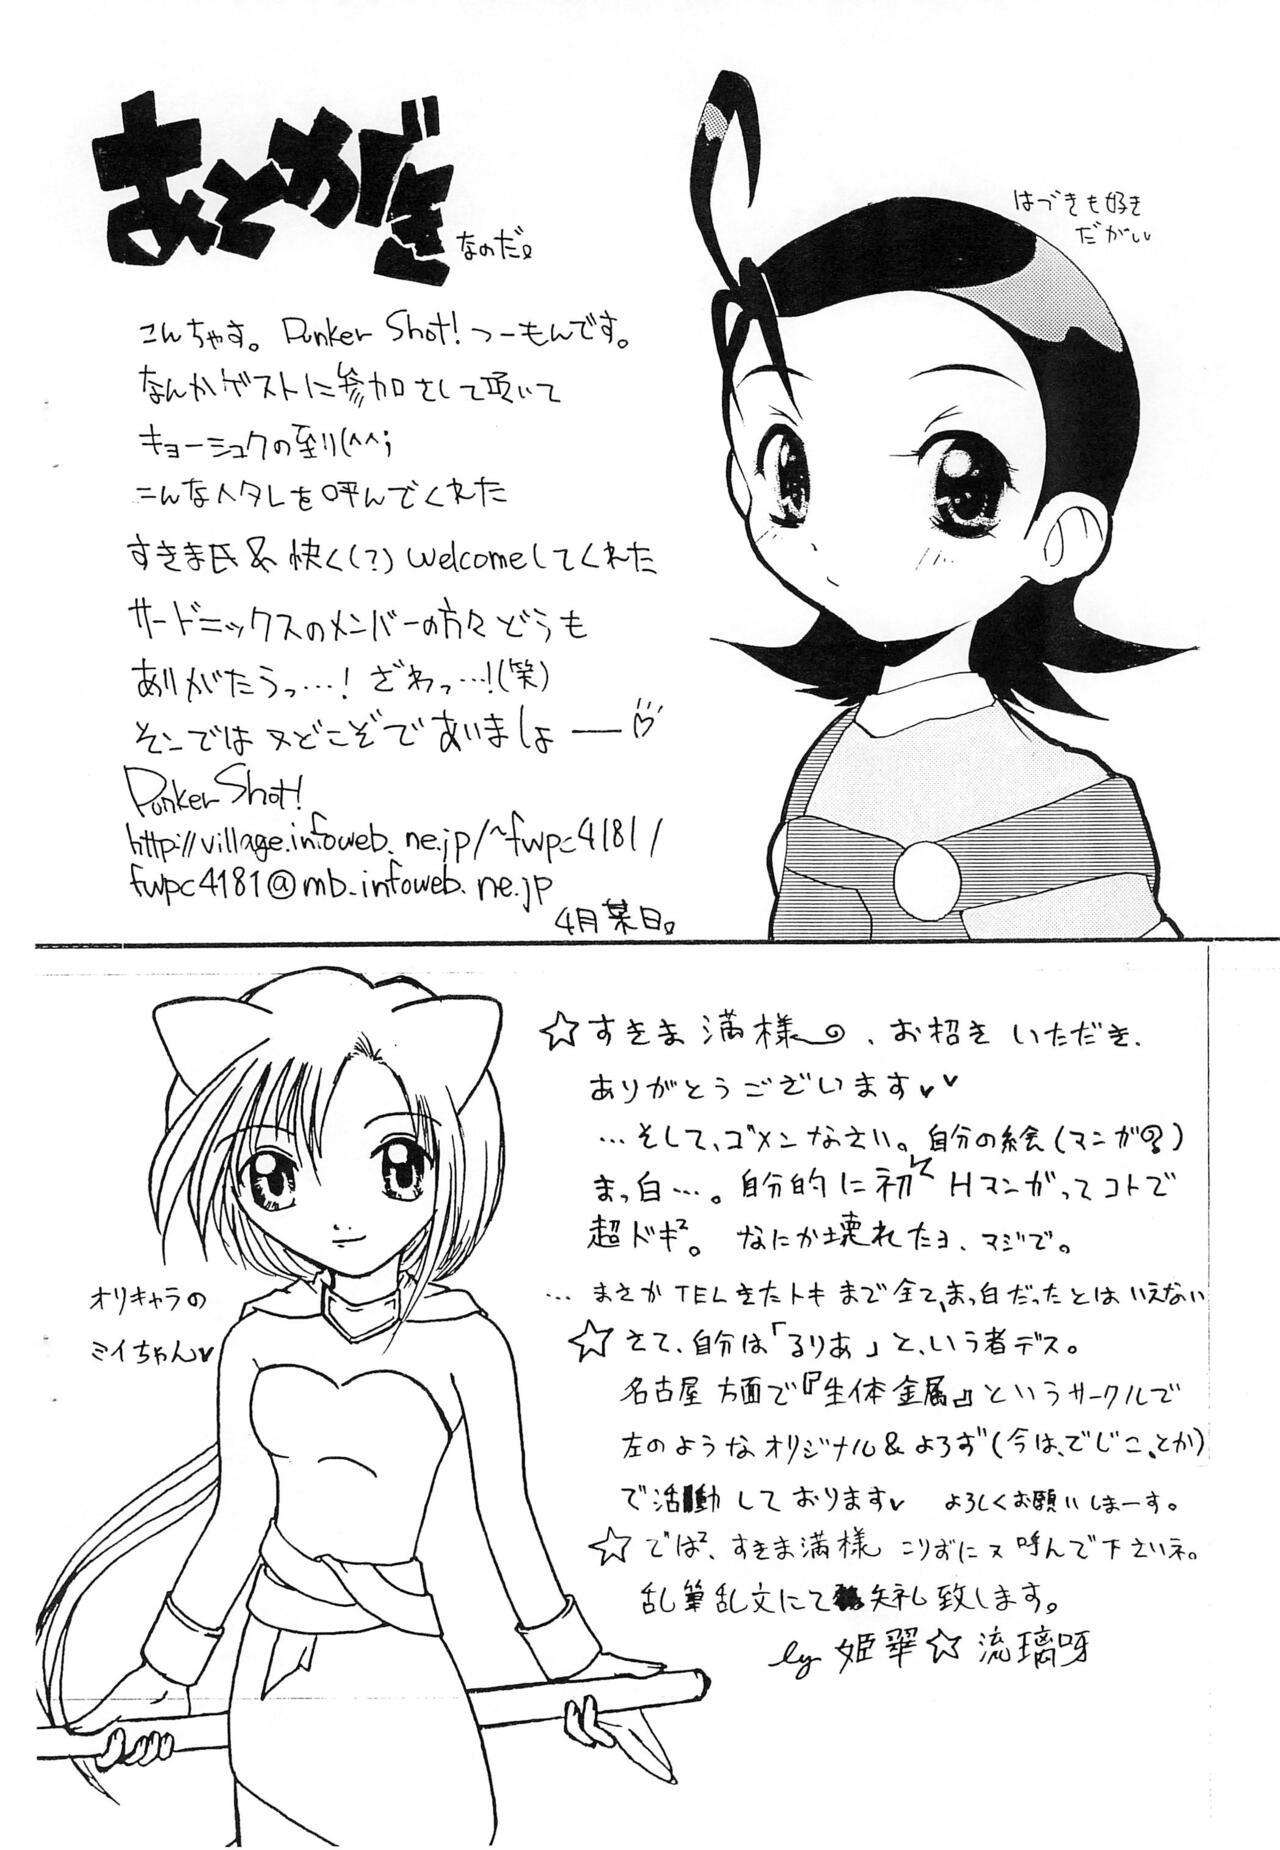 あとがき
なのだ。
はづきも好き
だがい
こんちゃす。Punker Shot!つーもんです。
なんかゲストに参加さして頂いて
キョーシュクの到り(^^;
こんなヘタレを呼んでくれた
すきま氏&快く(?)welcomeしてくれた
サードニックスのメンバーの方々どうも
ありがたうっ…!ざわっ…!(笑)
そこではヌどこぞであいましょーー♡
Punker Shot!
http://village.infoweb.ne.jp/~fwpc4181/
fwpc4181@mb.infoweb.ne.jp
4月某日。
☆すきま満様、お招きいただき、
ありがとうございます♥♥
…そして、ゴメンなさい。自分の絵(マンガ?)
まっ白…。自分的に初Hマンガってコトで
超ドキ²。なにか壊れたヨ、マジで。
…まさかTELきたトキまで全て、まっ白だったとはいえない
オリキャラの
ミイちゃん♥
☆さて、自分は「るりあ」と、いう者デス。
名古屋方面で『生体金属』というサークルで
左のようなオリジナル&よろず(今は、でじこ、とか)
で活動しております♥ よろしくお願いしまーす。
☆では²、すきま満様 こりずにヌ呼んで下さいネ。
乱筆乱文にて失礼致します。
by 姫翠☆流璃呀